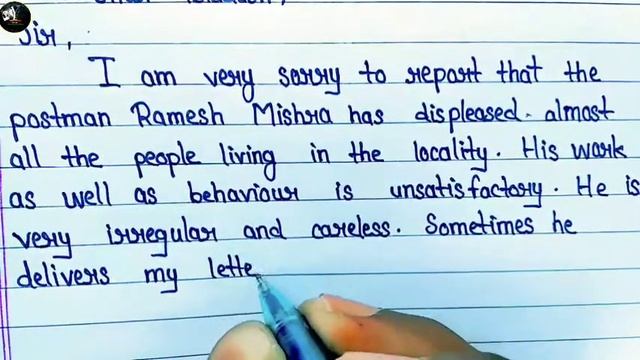 Sir,
I am very sorry to report that the
postman Ramesh Mishra has displeased. almost
all the people living in the locality. His work
as well as behaviour is unsatisfactory. He is
very irregular and careless. Sometimes he
delivers my lette